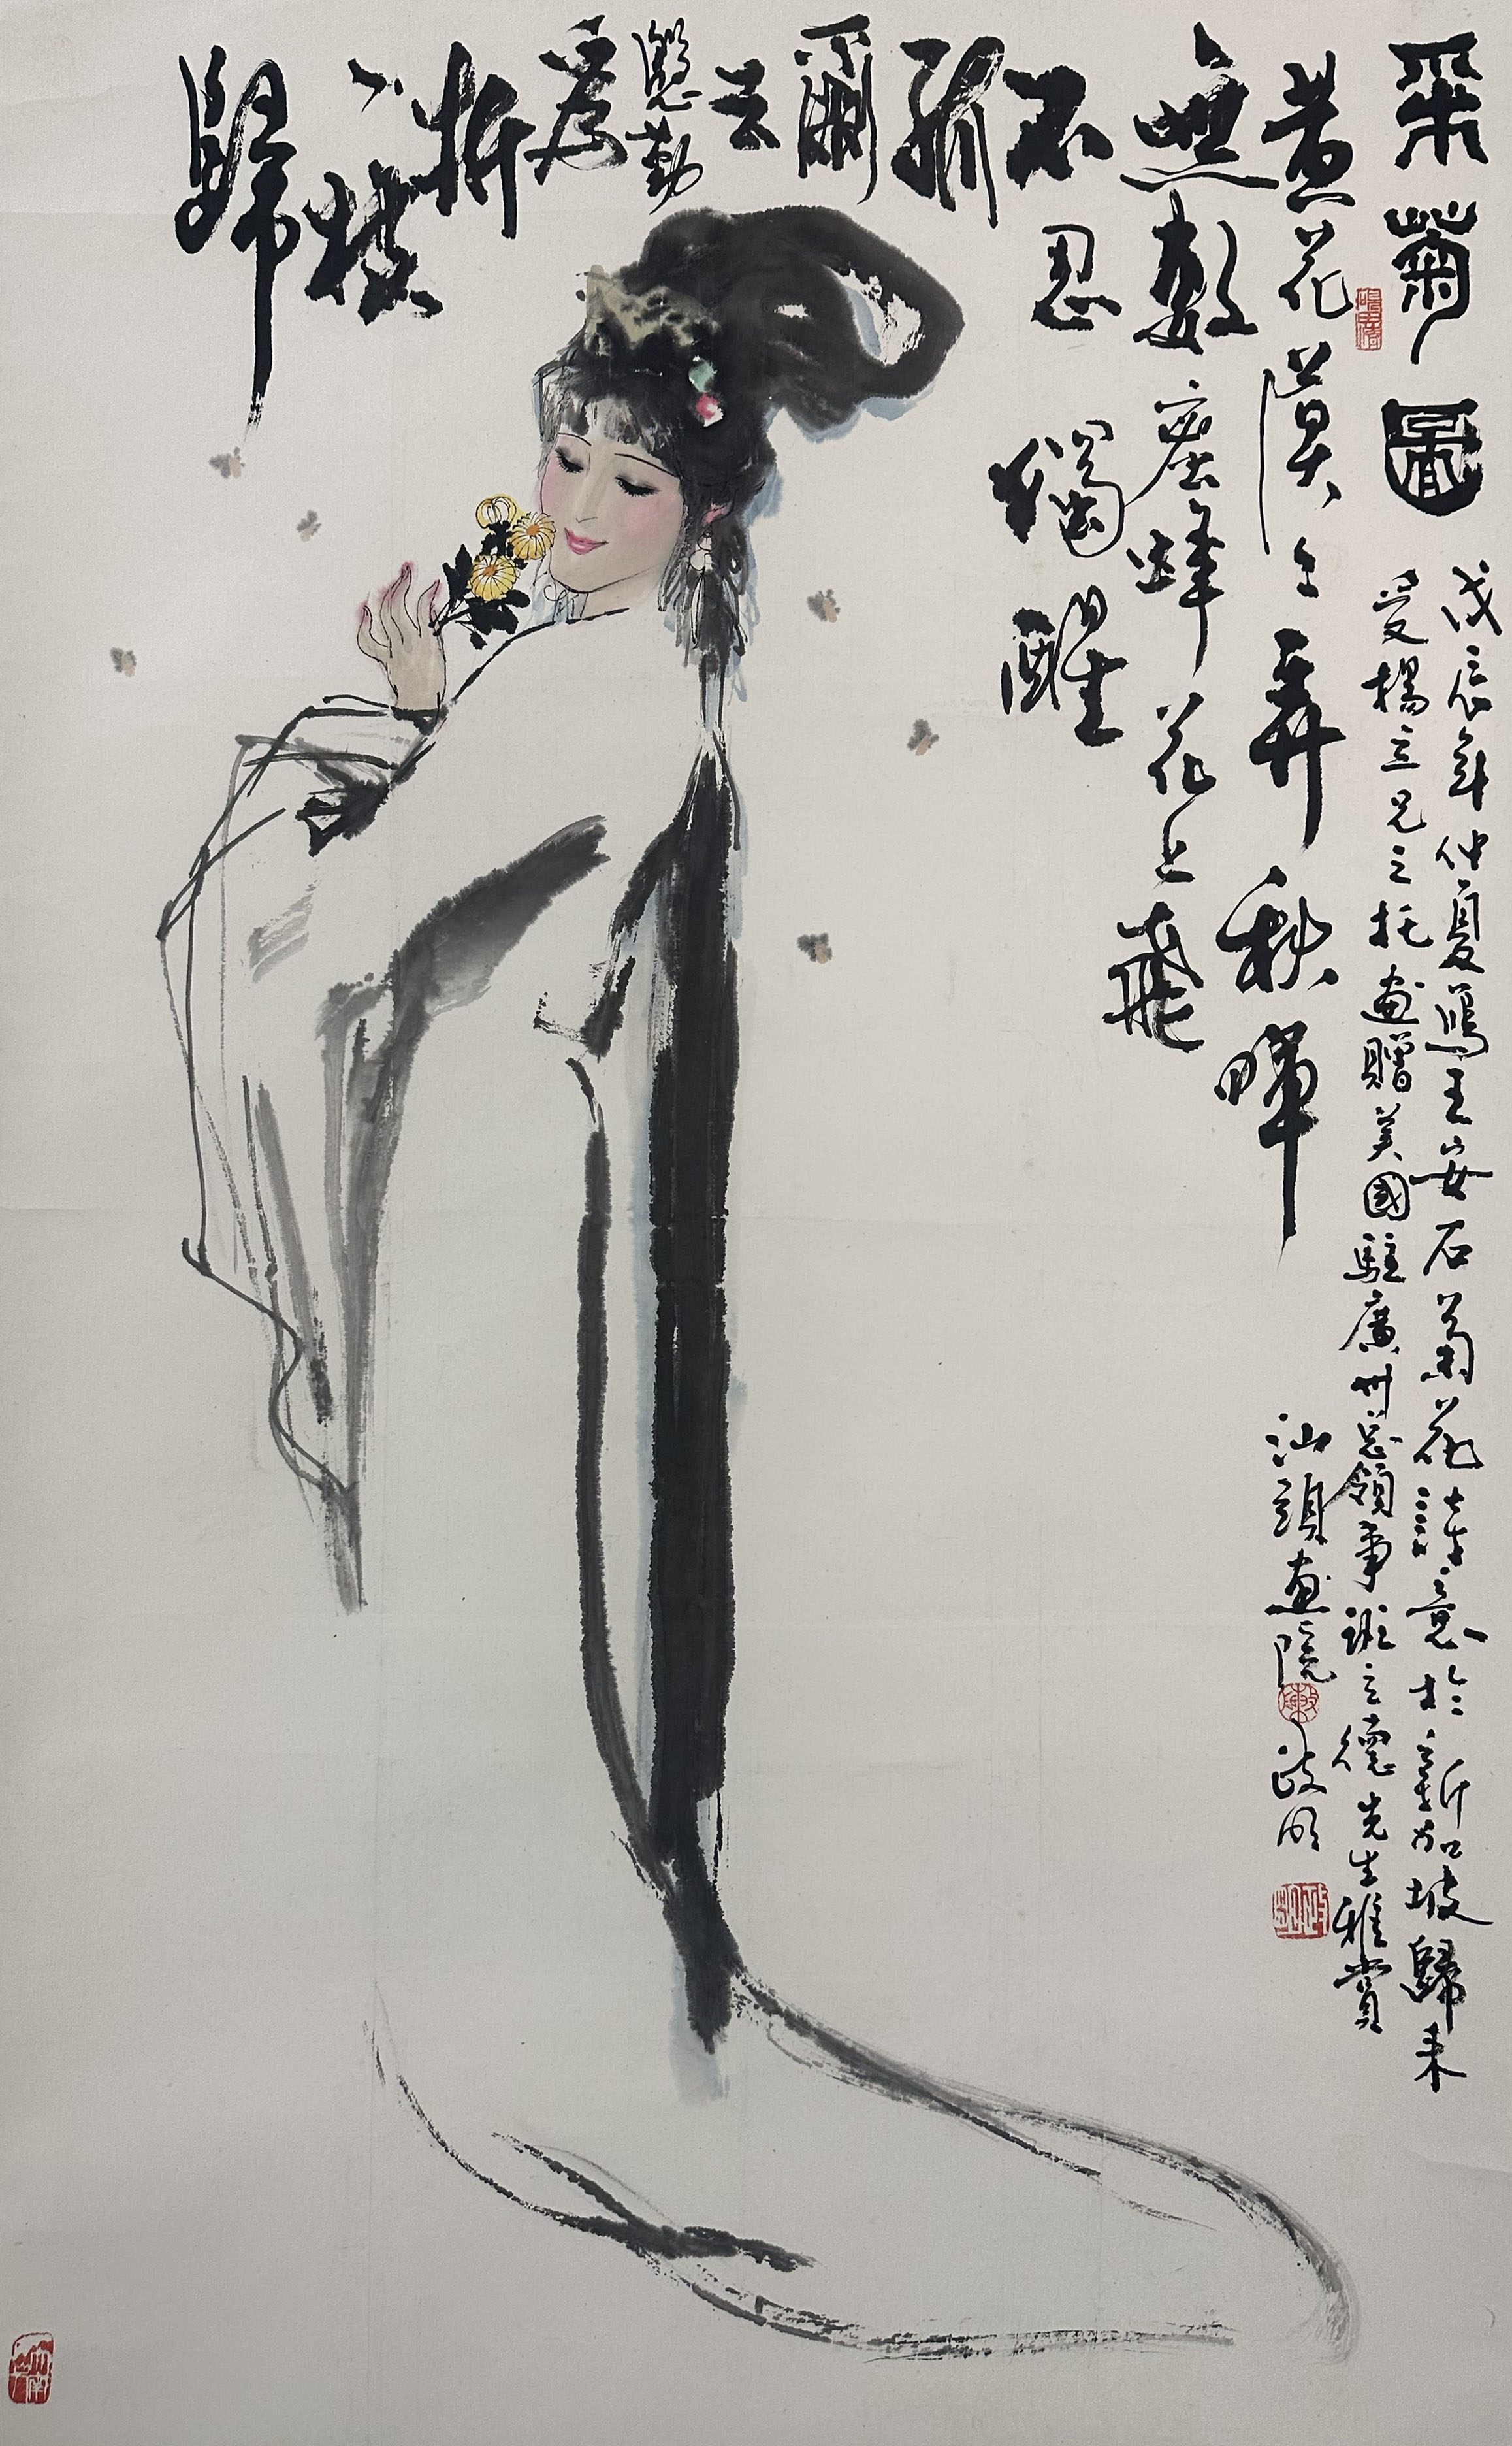 采菊圖
戊辰年仲夏寫王安石菊花詩意於新加坡歸来
受楊立兄之托畫贈美國駐廣州总領事班立德先生雅賞
汕頭畫院政明
黄花漠々弄秋暉
無數蜜蜂花上飛
不忍獨醒
孤
爾
去
慇勤
為
折
一枝
歸